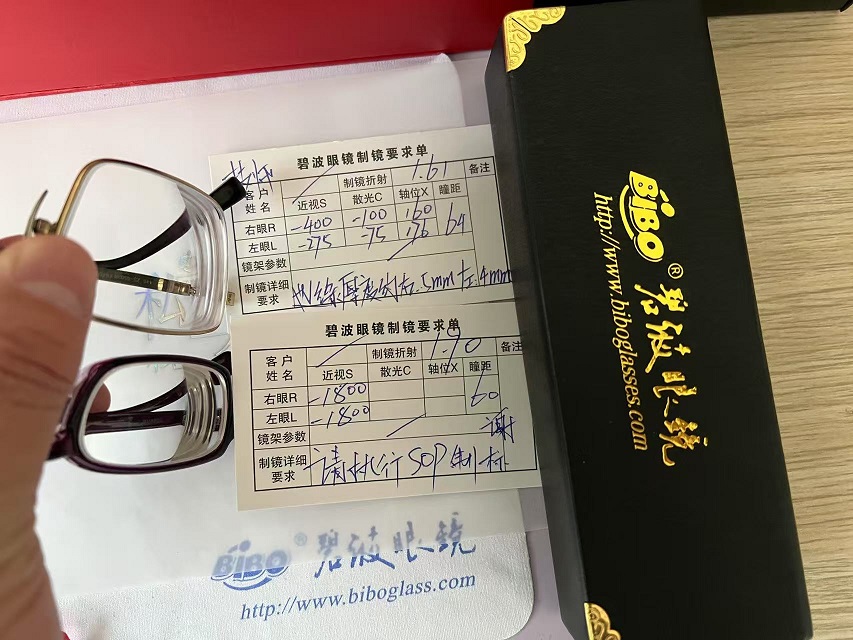 碧波眼镜制镜要求单
客户姓名 制镜折射 1.61 备注
近视S 散光C 轴位X 瞳距
右眼R -400 -100 160 64
左眼L -275 -75
镜架参数
制镜详细要求 边缘厚度约右5mm左4mm
碧波眼镜制镜要求单
客户姓名 制镜折射 1.90 备注
近视S 散光C 轴位X 瞳距
右眼R -1800 60
左眼L -1800
镜架参数 谢
制镜详细要求 请执行SOP制林
BiBO® 碧波眼镜
http://www.biboglass.com
BiBO® 碧波眼镜
http://www.biboglasses.com